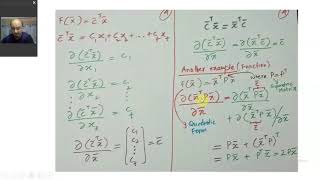 F(x̄) = c̄ᵀx̄
c̄ᵀx̄ = c₁x₁+c₂x₂+...+c₇x₇
∂(c̄ᵀx̄)/∂x₁ = c₁
∂(c̄ᵀx̄)/∂x₂ = c₂
⋮
∂(c̄ᵀx̄)/∂x₇ = c₇
∂(c̄ᵀx̄)/∂x̄ = [c₁ c₂ ⋮ c₇] = c̄
c̄ᵀx̄ = x̄ᵀc̄
∂(c̄ᵀx̄)/∂x̄ = ∂(x̄ᵀc̄)/∂x̄ = c̄
Another example (Function)
f(x̄) = x̄ᵀPx̄ where P=Pᵀ
Symmetric matrix
∂(x̄ᵀPx̄)/∂x̄ = ∂(x̄ᵀPx̄)/∂x̄
Quadratic Form
+ ∂(x̄ᵀPx̄)/∂x̄
= Px̄ + (x̄ᵀP)ᵀ
= Px̄ + Pᵀx̄ = 2Px̄